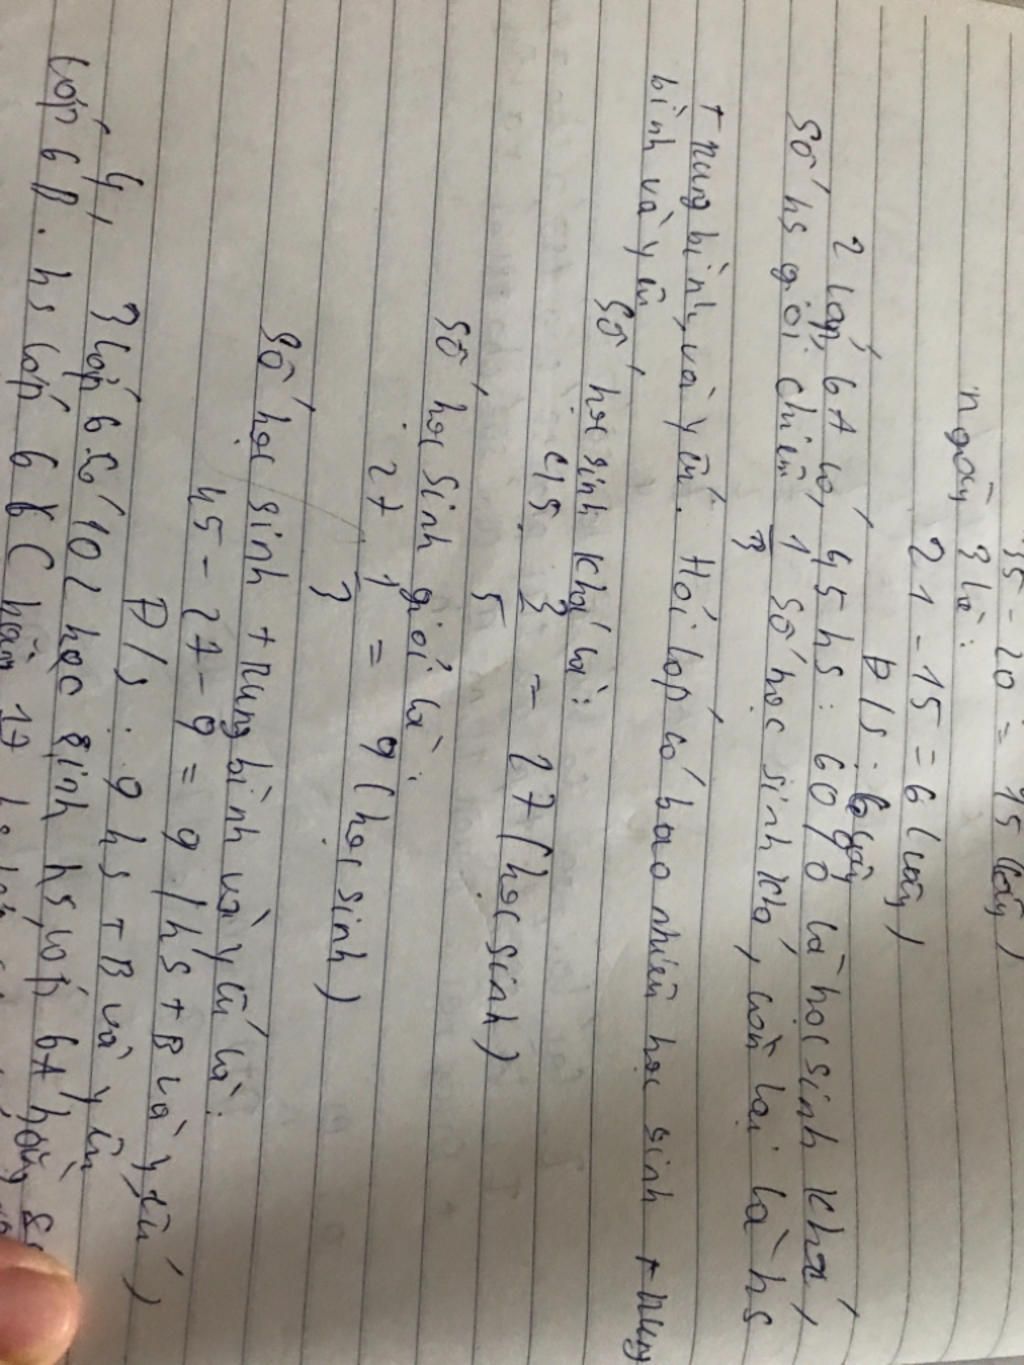 35 - 20 = 15 (cây)
ngày 3 là:
21 - 15 = 6 (cây)
Đ/s: 6 cây
2 lớp, 6A có, 45 hs: 60% là học sinh khá,
Số hs giỏi chiếm 1/3 số học sinh khá, còn lại là hs
trung bình, và yếu. Hỏi lớp có bao nhiêu học sinh trung
bình và yếu
Số học sinh khá là:
45 . 3/5 = 27 (học sinh)
Số học sinh giỏi là:
27 . 1/3 = 9 (học sinh)
Số học sinh trung bình và yếu là:
45 - 27 - 9 = 9 (hs TB và yếu)
Đ/s: 9 hs TB và yếu
4, 3 lớp 6 có 102 học sinh hs, lớp 6A bằng
lớp 6B. hs lớp 6C bằng 17